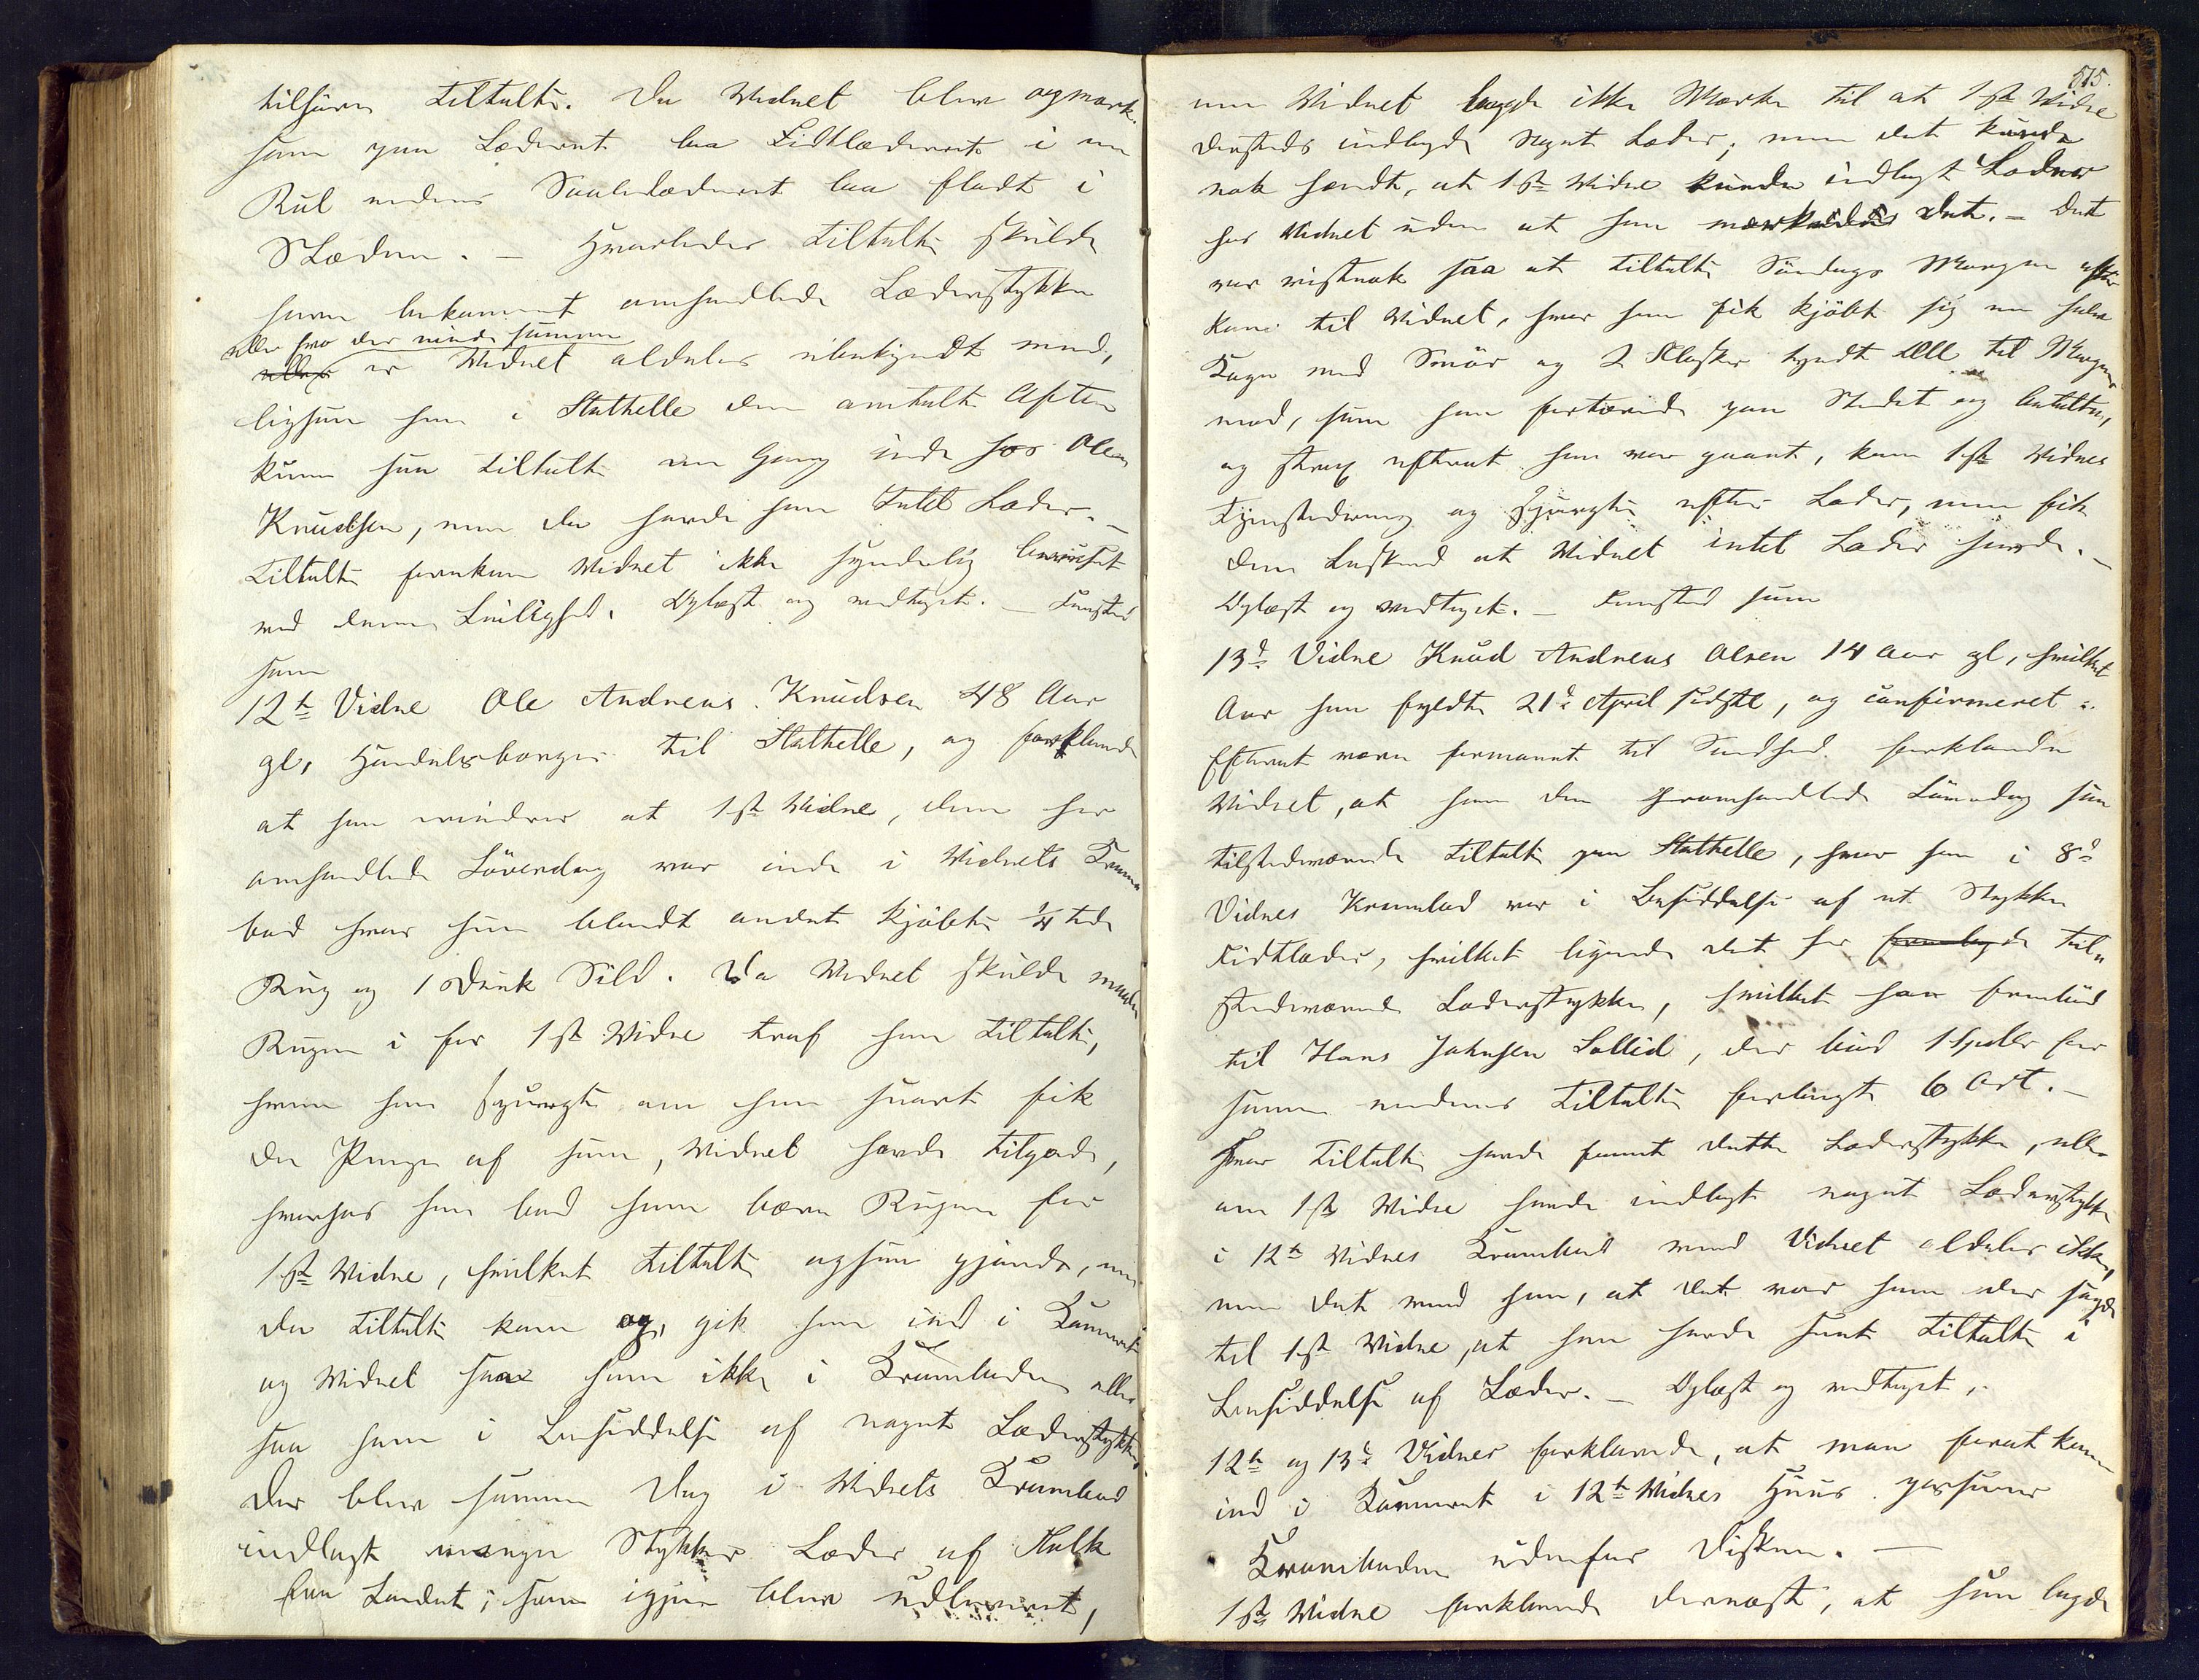 tilhører Tiltalte. Da Vidnet blev opmærk-
som paa Læderet laa Fidtlæderet i en
Rul medens Saalelæderet laa fladt i
Slæden. – Hvorledes Tiltalte skulde
have bekommet omhandlede Læderstykker
eller fra der vinde sammen
er Vidnet aldeles ubekjendt med,
ligesom han i Stathelle den omtalte Aften
kun saa Tiltalte en Gang inde hos Ole
Knudsen, men da havde han Intet Læder. –
Tiltalte forekom Vidnet ikke synderlig beruset
ved denne Leilighed. Oplæst og vedtaget. – Fremstod
som
12te Vidne Ole Andreas Knudsen 48 Aar
gl, Handelsborger til Stathelle, og forklarede
at han minder at 1ste Vidne, den her
omhandlede Löverdag var inde i Vidnets Kram-
bod hvor hun blandt andet kjöbte ¼ Tde
Rug og 1 Dunk Sild. Da Vidnet skulde maale
Rugen i for 1ste Vidne traf han Tiltalte,
hvem han spurgte om han snart fik
de Penge af ham, Vidnet havde tilgode,
hvorhos han bad ham bære Rugen for
1ste Vidne, hvilket Tiltalte ogsaa gjorde, men
da Tiltalte kom op, gik han ind i Kammeret
og Vidnet saae ham ikke i Kramboden eller
saa ham i Besiddelse af noget Læderstykke.
Der blev samme Dag i Vidnets Krambod
indlagt mange Stykker Læder af Folk
fra Landet, som igjen blev udleveret,
515.
men Vidnet lagde ikke Mærke til at 1ste Vidne
dersteds indlagde noget Læder; men det kunde
nok hændt, at 1ste Vidne kunde indlagt Læder
hos Vidnet uden at han mærkede det. – Det
var vistnok saa at Tiltalte Söndags Morgen efter
kom til Vidnet, hvor han fik kjöbt sig en halv
Kage med Smör og 2 Flasker tyndt Öll til Morgen-
mad, som han fortærede paa Stedet og betalte,
og strax efterat han var gaaet, kom 1ste Vidnes
Tjenestedreng og spurgte efter Læder, men fik
den Besked at Vidnet intet Læder havde. –
Oplæst og vedtaget. – Fremstod som
13d Vidne Knud Andreas Olsen 14 Aar gl, hvilket
Aar han fyldte 21de April sidstl, og confirmeret.
Efterat være formanet til Sandhed forklarede
Vidnet, at han den heromhandlede Löverdag saa
tilstedeværende Tiltalte paa Stathelle, hvor han i 8de
Vidnes Krambod var i Besiddelse af et Stykke
Fidtlæder, hvilket lignede det her foreliggende til-
stedeværende Læderstykke, hvilket han fremböd
til Hans Johnsen Sollid, der böd 1 Spdlr for
samme medens Tiltalte forlangte 6 Ort. –
Hvor Tiltalte havde faaet dette Læderstykke, eller
om 1ste Vidne havde indlagt noget Læderstykke
i 12te Vidnes Krambod veed Vidnet aldeles ikke,
men det veed han, at det var ham der sagde
til 1ste Vidne, at han havde seet Tiltalte i
Besiddelse af Læder. – Oplæst og vedtaget.
12te og 13de Vidner forklarede, at man for at komme
ind i Kammeret i 12te Vidnes Huus passerer
Kramboden udenfor Disken. –
1ste Vidne forklarede dernæst, at hun lagde